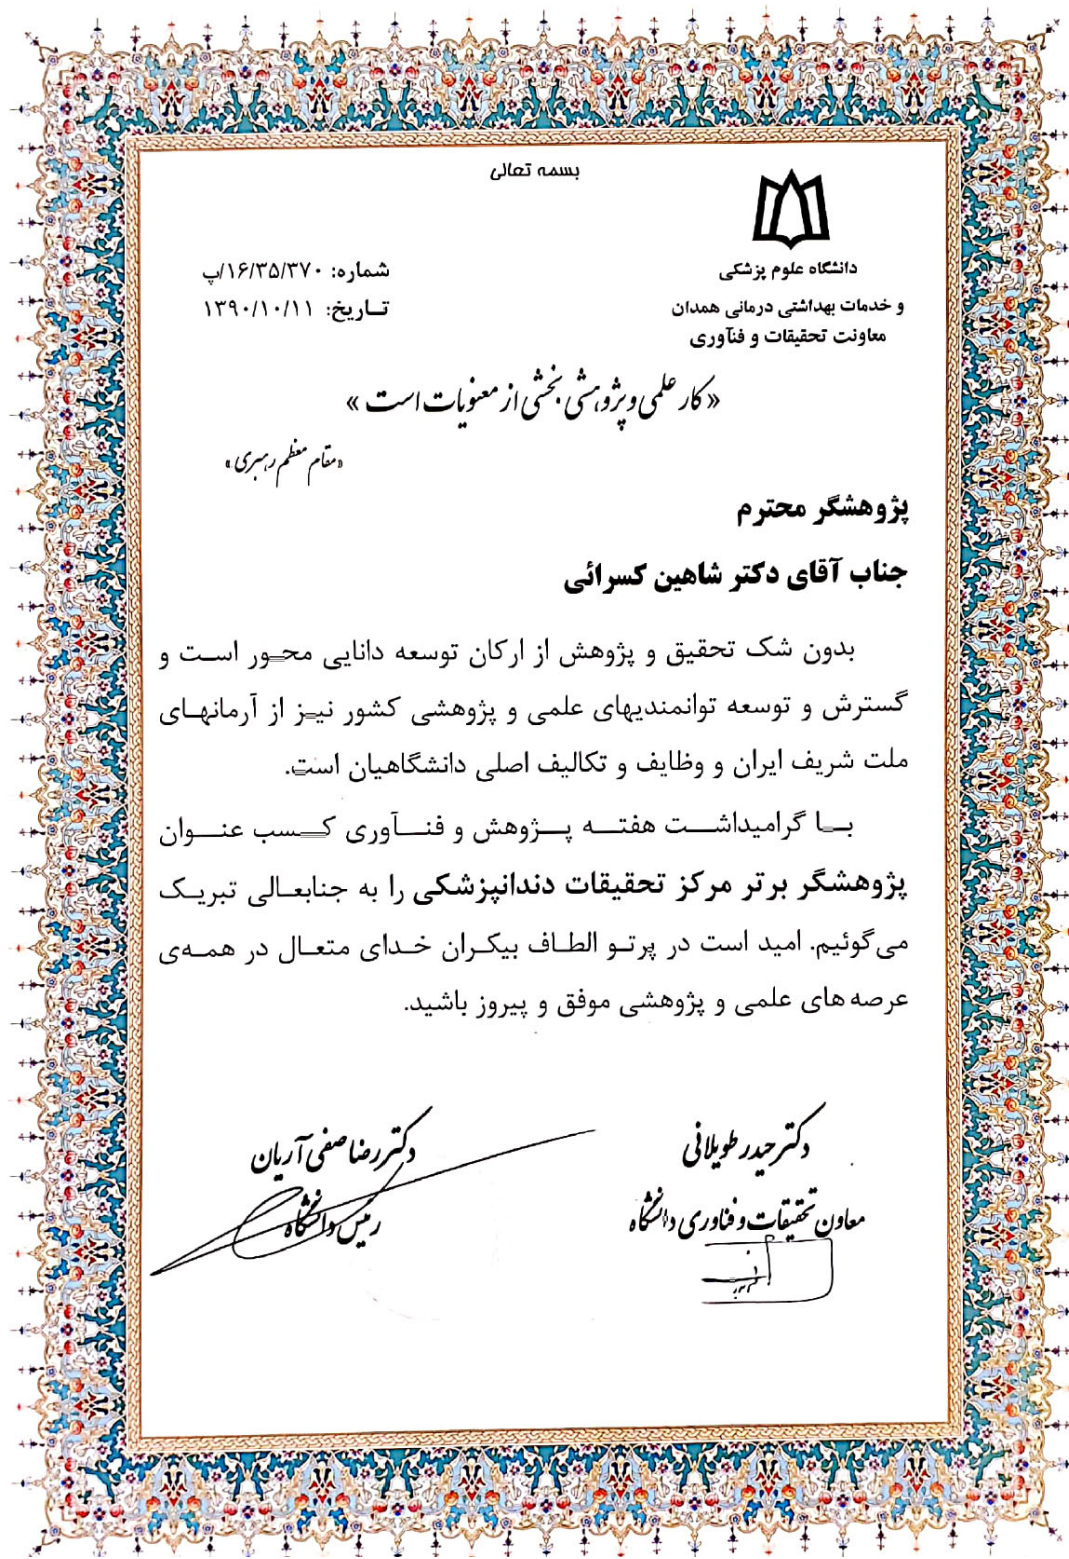 بسمه تعالی
دانشگاه علوم پزشکی
و خدمات بهداشتی درمانی همدان
معاونت تحقیقات و فنآوری
شماره: ۱۶/۳۵/۳۷۰/پ
تـاریخ: ۱۳۹۰/۱۰/۱۱
«کار علمی و پژوهشی بخشی از معنویات است»
«مقام معظم رهبری»
پژوهشگر محترم
جناب آقای دکتر شاهین کسرائی
بدون شک تحقیق و پژوهش از ارکان توسعه دانایی محـور اسـت و
گسترش و توسعه توانمندیهای علمی و پژوهشی کشور نیـز از آرمانهـای
ملت شریف ایران و وظایف و تکالیف اصلی دانشگاهیان است.
بـا گرامیداشـت هفتـه پـژوهش و فنـآوری کـسب عنـوان
پژوهشگر برتر مرکز تحقیقات دندانپزشکی را به جنابعـالی تبریـک
می‌گوئیم. امید است در پرتـو الطـاف بیکـران خـدای متعـال در همـه‌ی
عرصه های علمی و پژوهشی موفق و پیروز باشید.
دکتر حیدر طویلانی
معاون تحقیقات و فناوری دانشگاه
دکتر رضا صفی آریان
رئیس دانشگاه